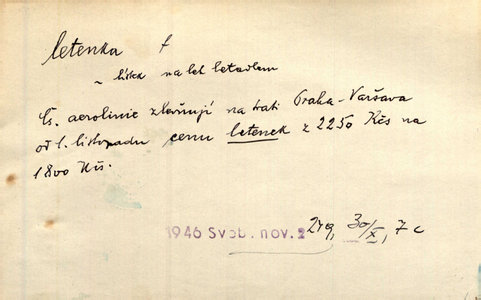 letenka f
~ lístek na let letadlem
Čs. aerolinie zlevňují na trati Praha - Varšava
od 1. listopadu cenu letenek z 2250 Kčs na
1800 Kčs.
1946 Svob. nov. 2 249, 30/X, 7 c